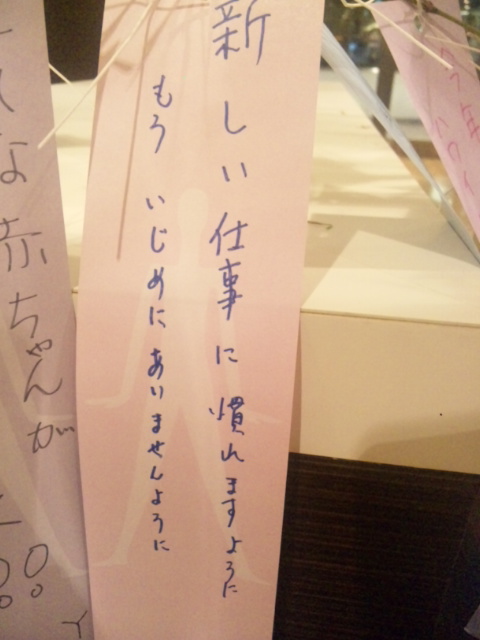 新しい仕事に慣れますように
もう いじめにあいませんように
な赤ちゃんが
今年